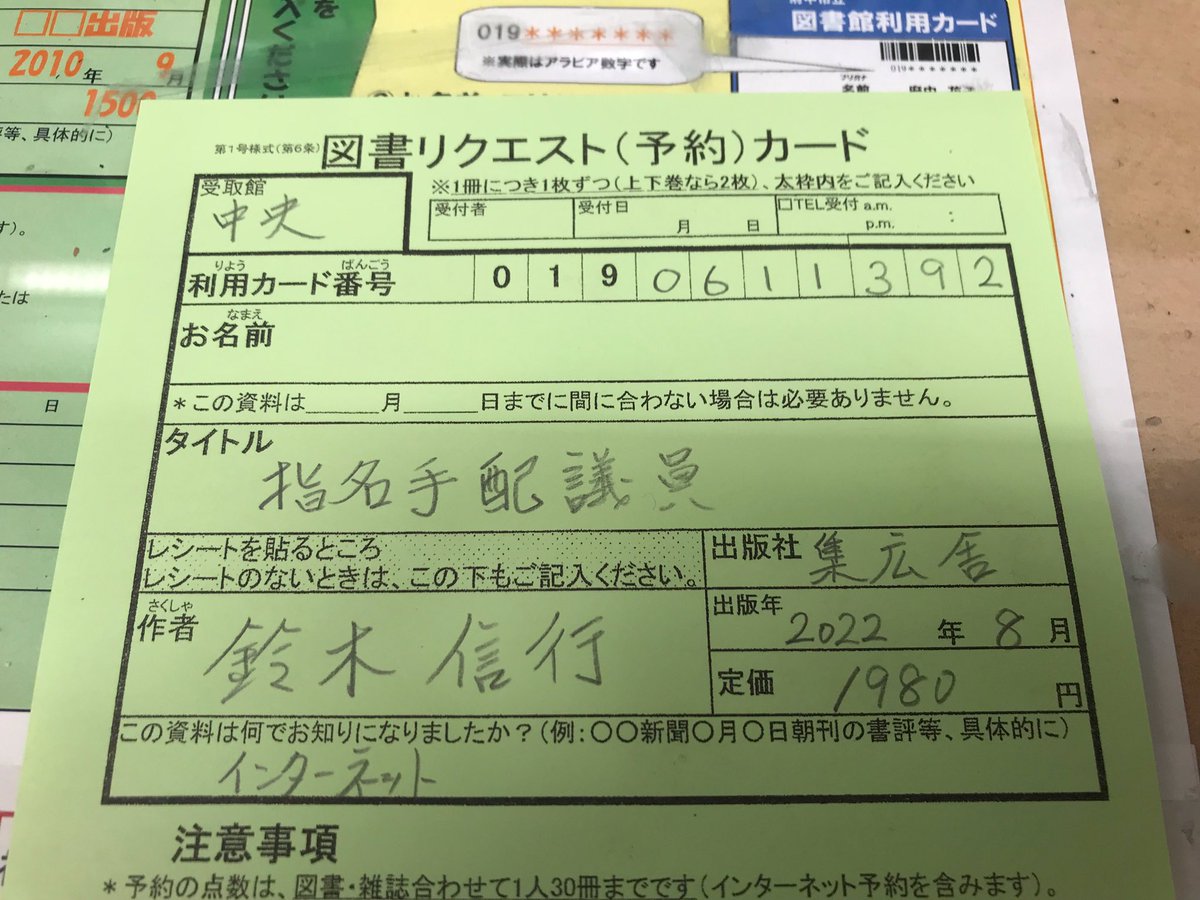 □□出版
2010年 9月
1500
等、具体的に)
す)。
たは
日
を
019*******
※実際はアラビア数字です
図書館利用カード
019*******
フリガナ
名前
第1号様式(第6条) 図書リクエスト(予約)カード
※1冊につき1枚ずつ(上下巻なら2枚)、太枠内をご記入ください
受取館
中央
受付者
受付日
月 日
□TEL受付 a.m.
p.m. :
りよう ばんごう
利用カード番号 0 1 9 0 6 1 1 3 9 2
なまえ
お名前
*この資料は______月______日までに間に合わない場合は必要ありません。
タイトル
指名手配議員
レシートを貼るところ
レシートのないときは、この下もご記入ください。
出版社 集広舎
さくしゃ
作者 鈴木信行
出版年
2022 年 8 月
定価 1980 円
この資料は何でお知りになりましたか?(例:〇〇新聞〇月〇日朝刊の書評等、具体的に)
インターネット
注意事項
*予約の点数は、図書・雑誌合わせて1人30冊までです(インターネット予約を含みます)。